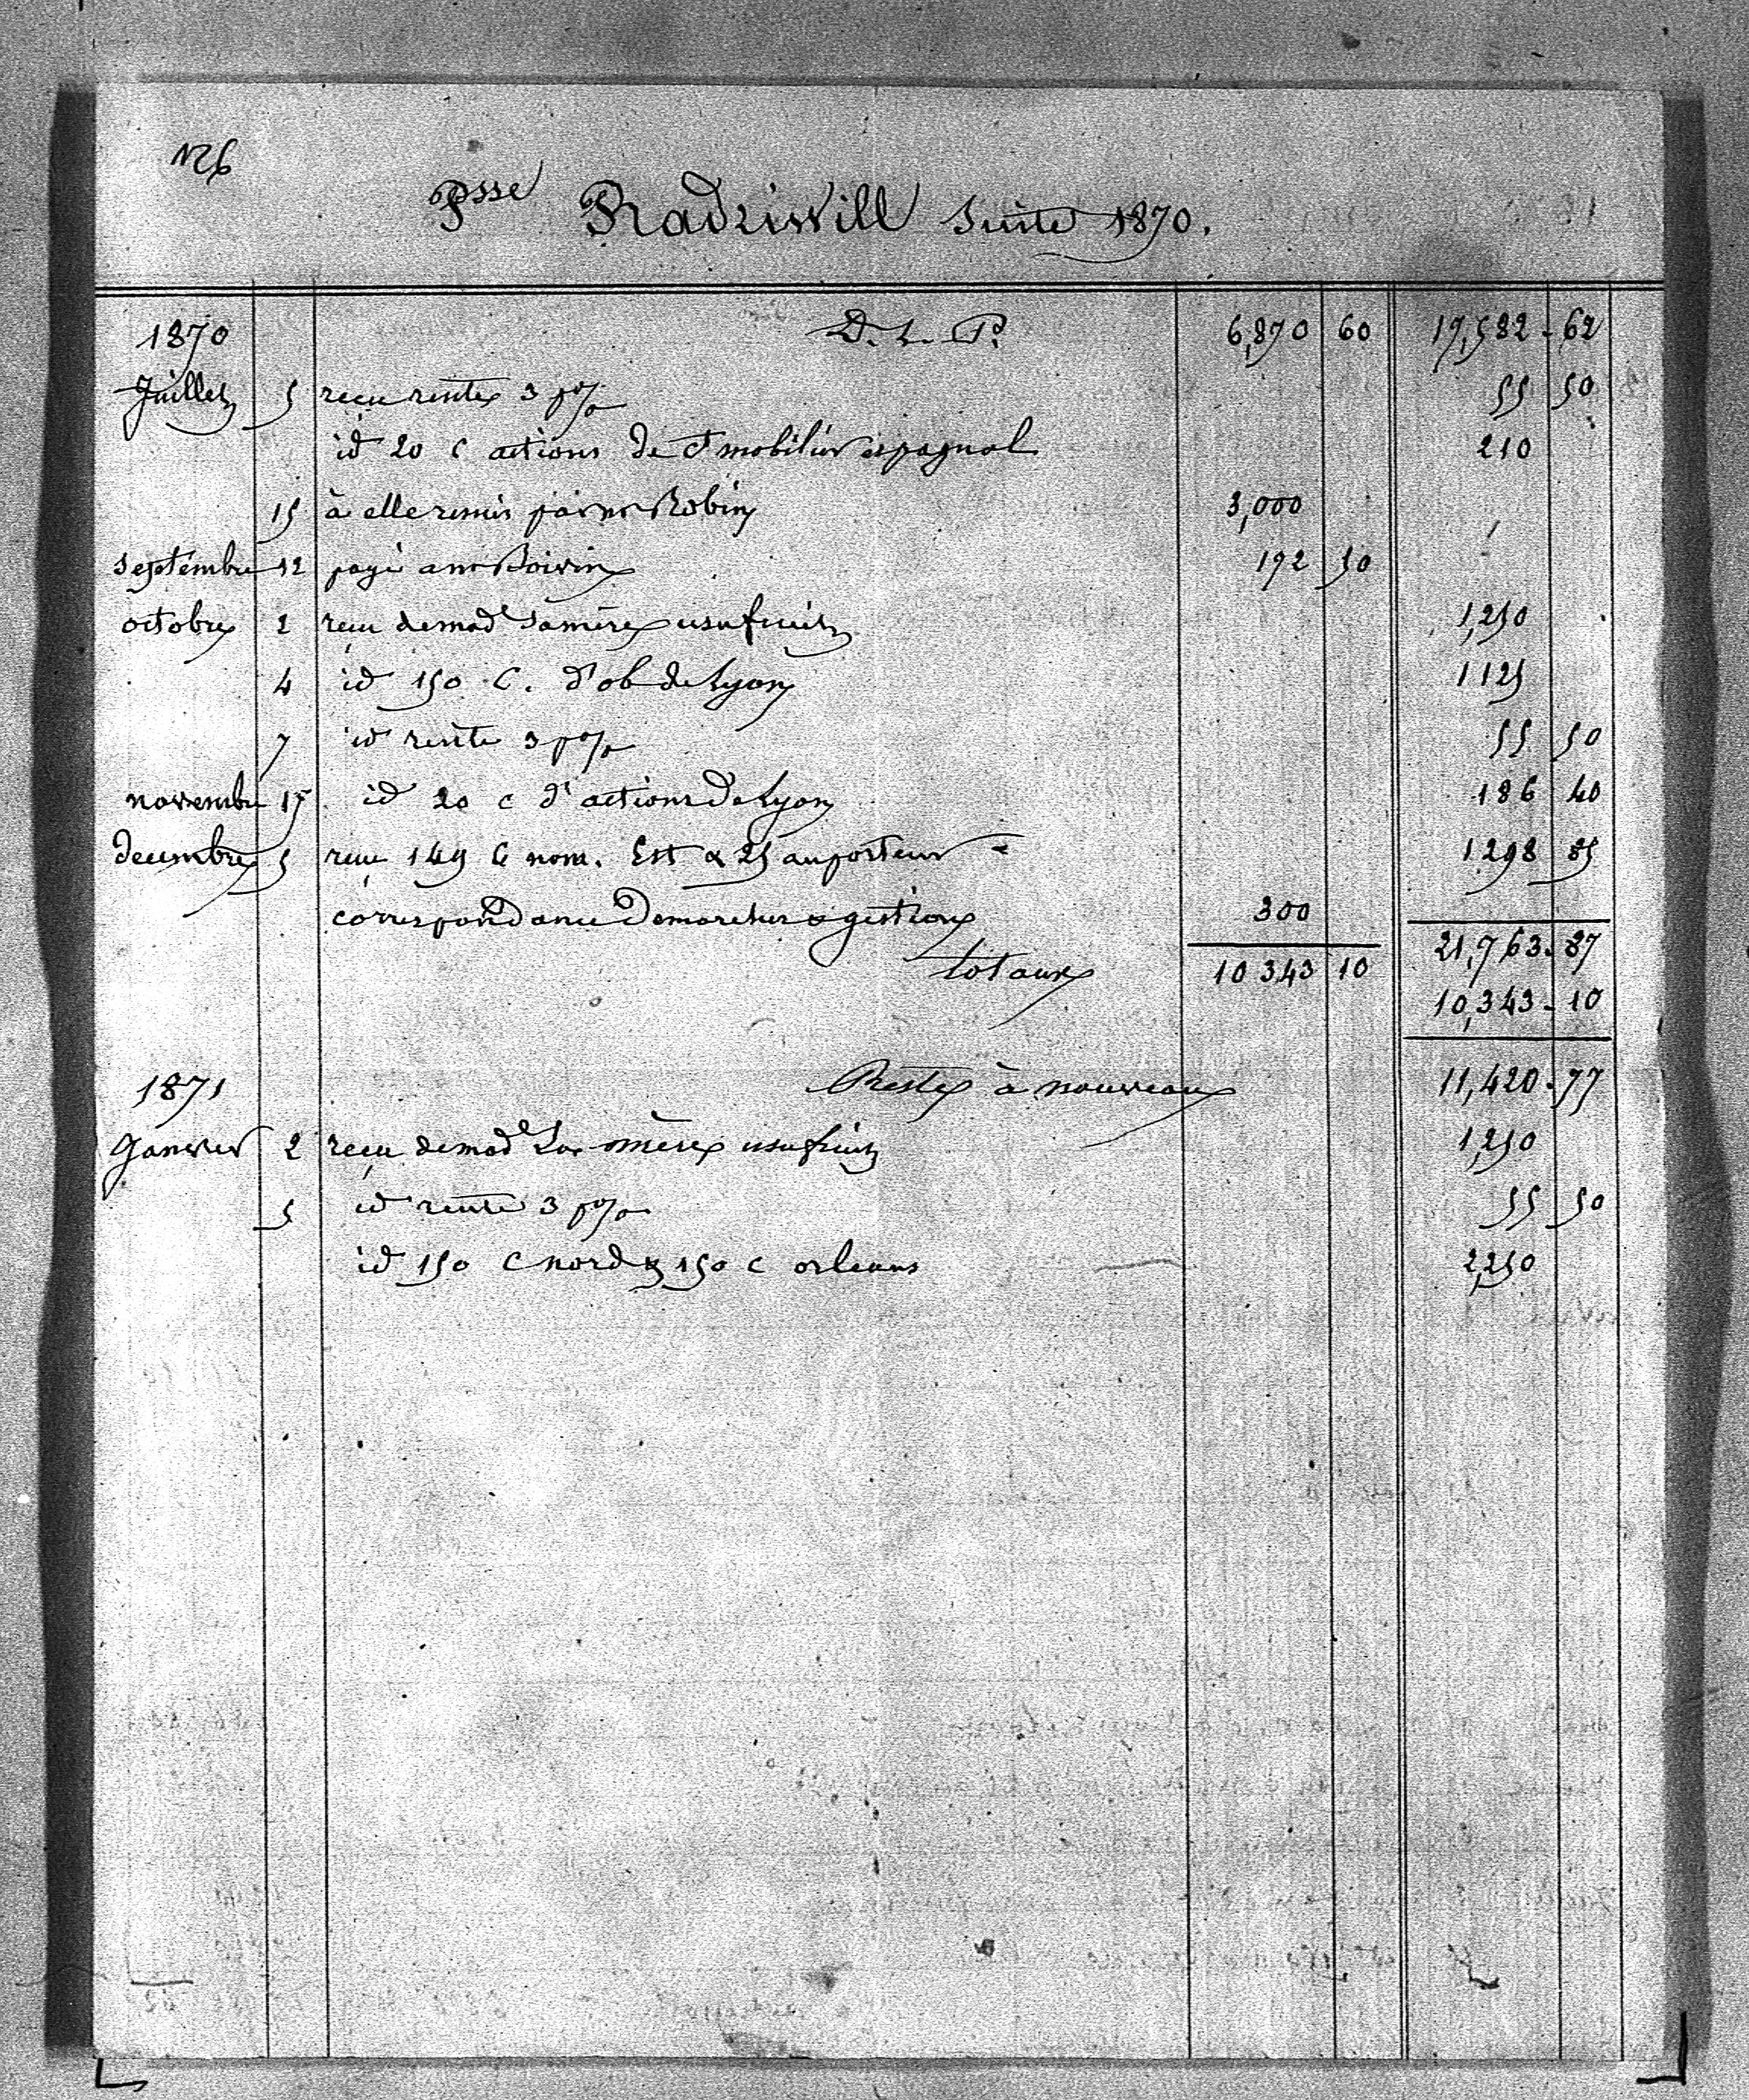 126
Psse Radziwill suite 1870.
1870 D. L. P. 6,870 60 17,582 - 62
Juillet 5 reçu rente 3 p% 55 50
id 20 C actions de Ct mobilier espagnol 210
15 à elle remis par mr Robin 3,000
Septembre 12 payé a mr Boivin 172 50
octobre 2 reçu de mad sa mère usufruit 1,250
4 id 150 C. d'ob de Lyon 1125
7 id rente 3 p% 55 50
novembre 15 id 20 c d'actions de Lyon 186 40
decembre 5 reçu 145 C nom. Est & 25 au porteur 1298 85
correspondance demarches & gestion 300
totaux 10 343 10 21,763 - 87
10,343 - 10
1871 Reste à nouveau 11,420 - 77
Janvier 2 reçu de mad sa mère usufruit 1,250
5 id rente 3 p% 55 50
id 150 C nord & 150 C orleans 2,250